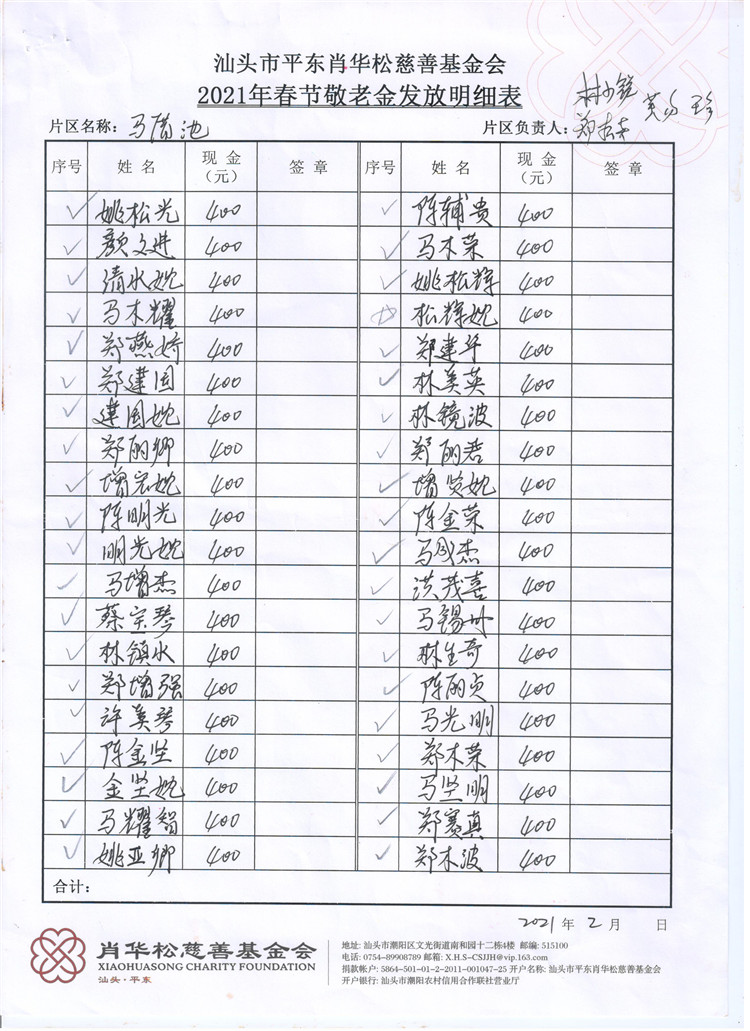 汕头市平东肖华松慈善基金会
2021年春节敬老金发放明细表
片区名称：马滘池
片区负责人：
序号 姓名 现金（元） 签章 序号 姓名 现金（元） 签章
姚松光 400 陈辅贵 400
颜文进 400 马木荣 400
清水婉 400 姚松辉 400
马木耀 400 松辉婉 400
郑燕娇 400 郑建平 400
郑建国 400 林美英 400
建国婉 400 林镜波 400
郑丽卿 400 郑丽君 400
增宏婉 400 增贤婉 400
陈明光 400 陈金荣 400
明光婉 400 马成杰 400
马增杰 400 洪茂喜 400
蔡宝琴 400 马锡州 400
林镇水 400 林生奇 400
郑增强 400 陈丽贞 400
许美琴 400 马光明 400
陈金坚 400 郑木荣 400
金坚婉 400 马坚明 400
马耀智 400 郑赛真 400
姚亚卿 400 郑木波 400
合计：
2021年2月 日
肖华松慈善基金会
XIAOHUASONG CHARITY FOUNDATION
汕头·平东
地址: 汕头市潮阳区文光街道南和园十二栋4楼 邮编: 515100
电话: 0754-89908789 邮箱: X.H.S-CSJJH@vip.163.com
捐款帐户: 5864-501-01-2-2011-001047-25 开户名称: 汕头市平东肖华松慈善基金会
开户银行: 汕头市潮阳农村信用合作联社营业厅